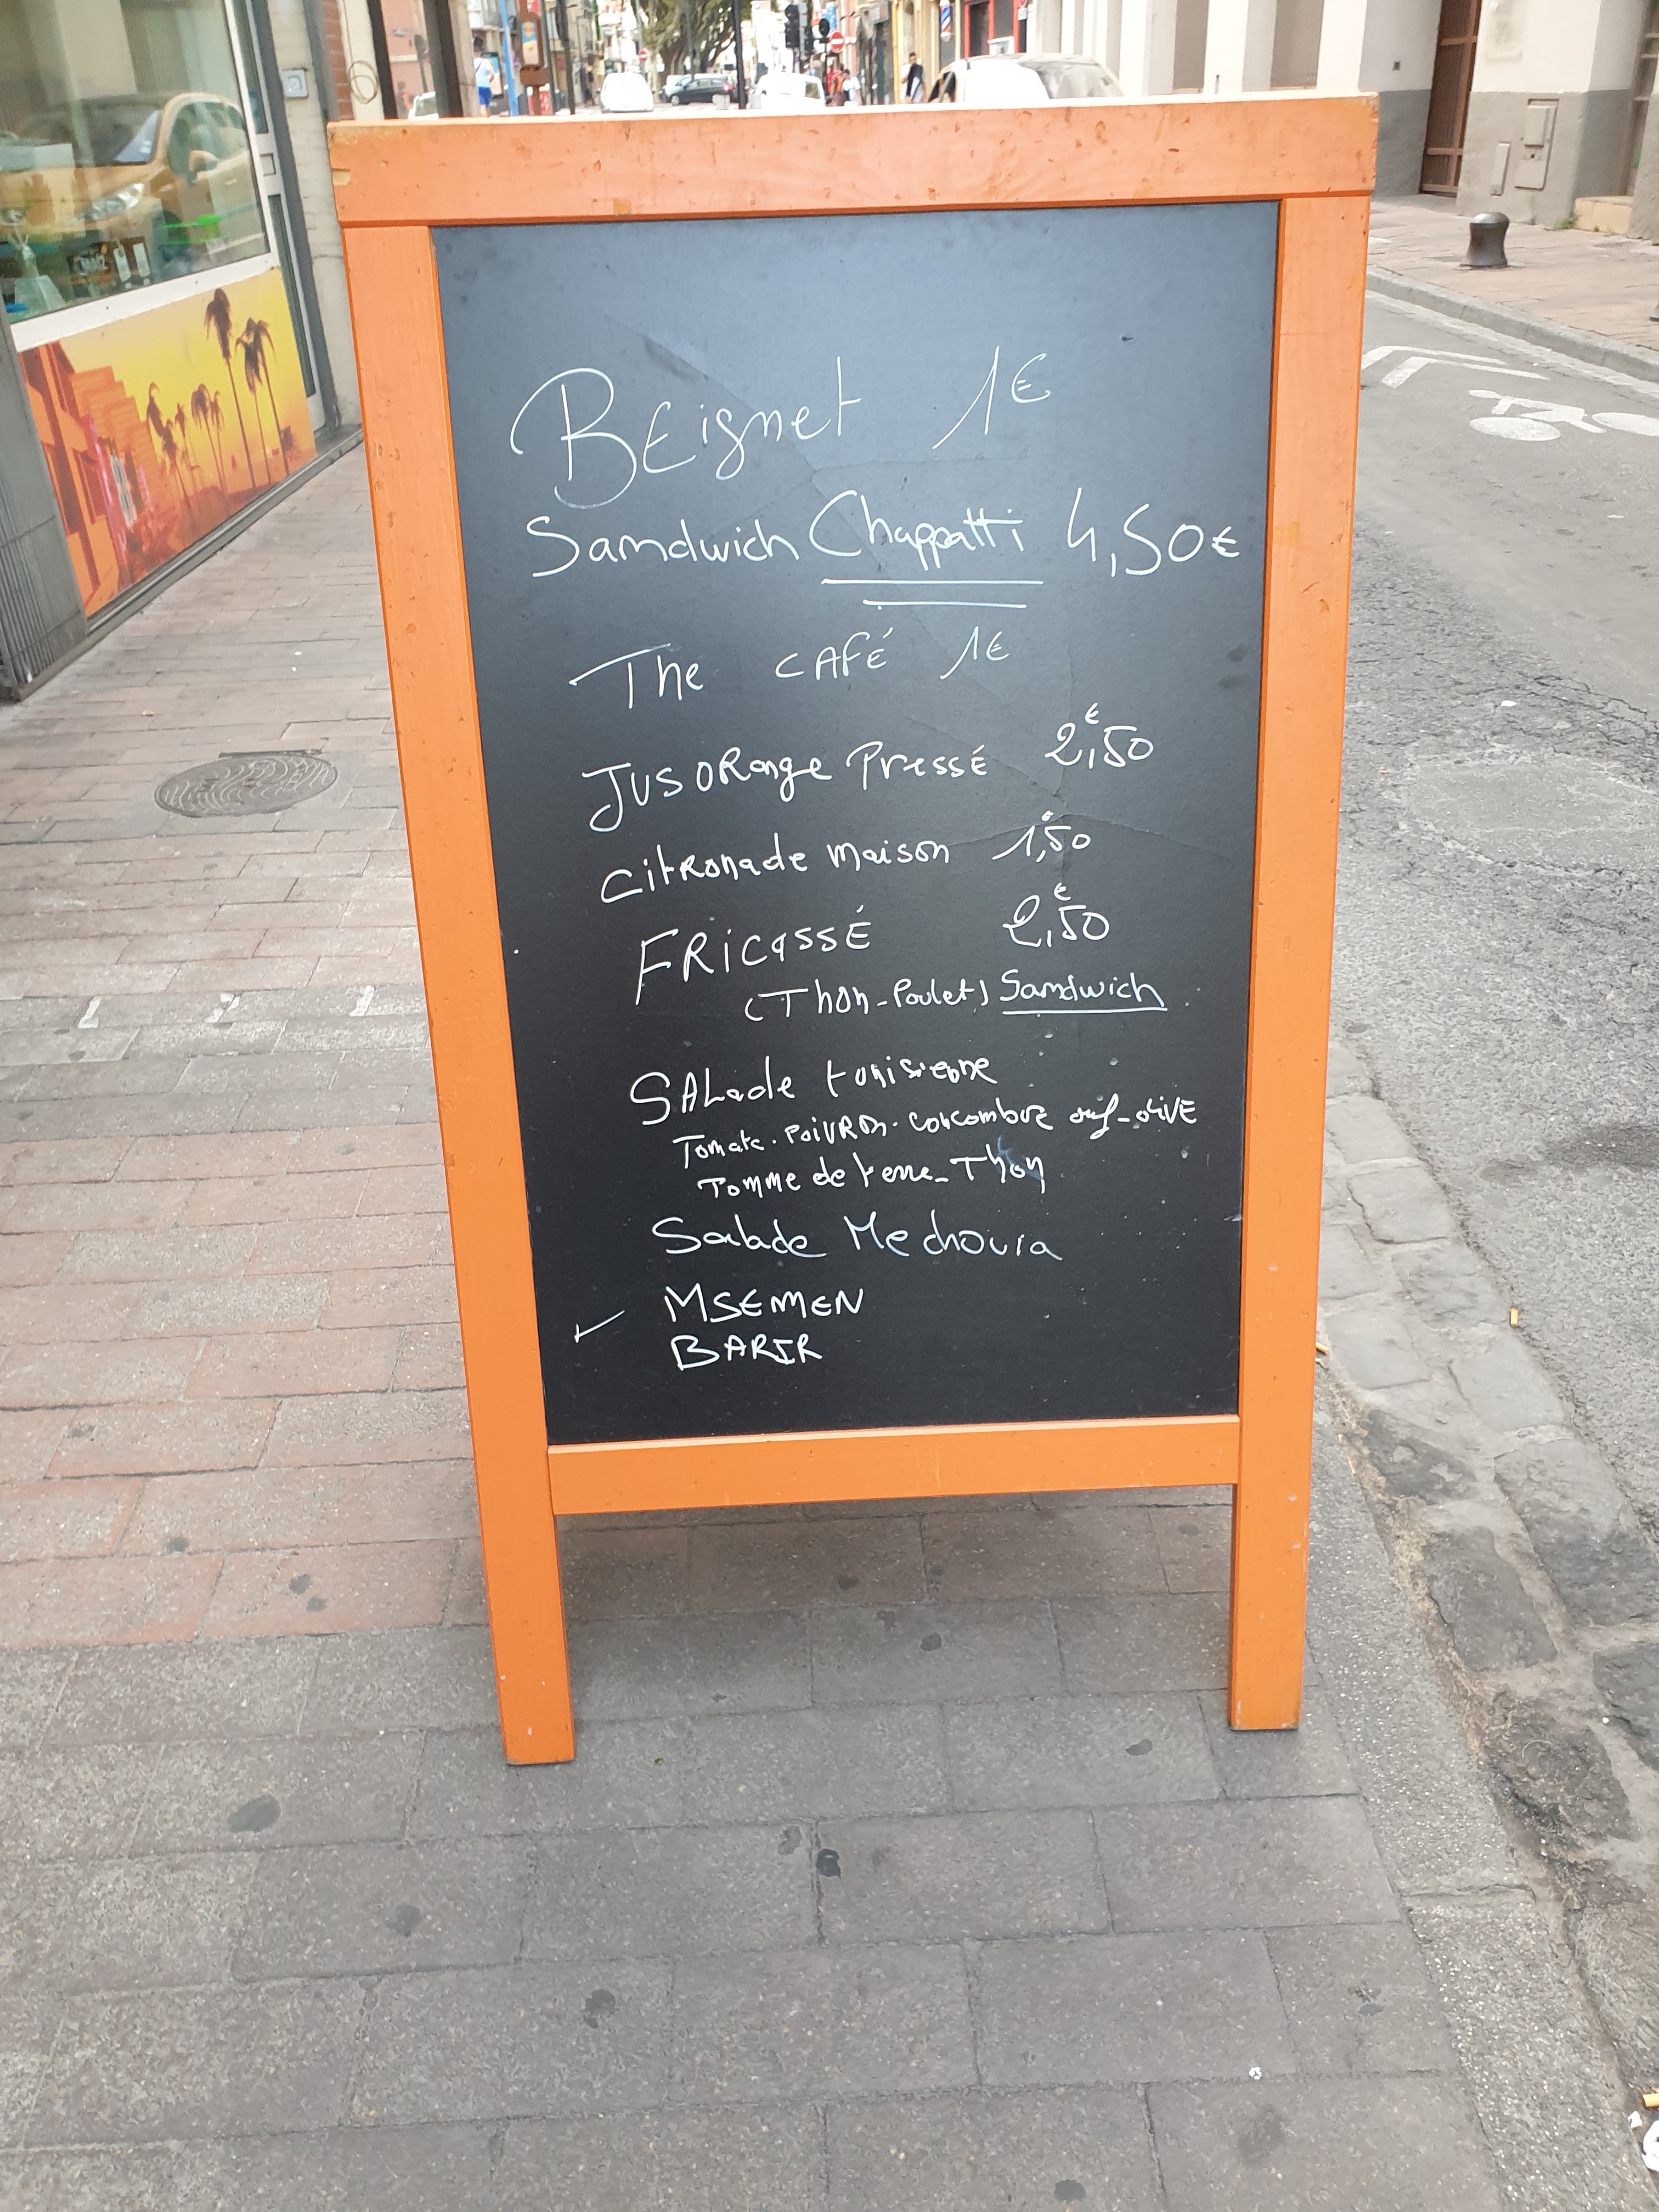 BEignet 1€
Samdwich Chappatti 4,50€
The CAFÉ 1€
JUS ORange Pressé 2,50€
Citronade maison 1,50
FRiCaSSÉ 2,50€
(Thon-Poulet) Samdwich
SALade tunisienne
Tomate. POIVRON. concombre œuf-oliVE
Tomme de terre-Thon
Salade Mechouia
MSEMEN
BARIR